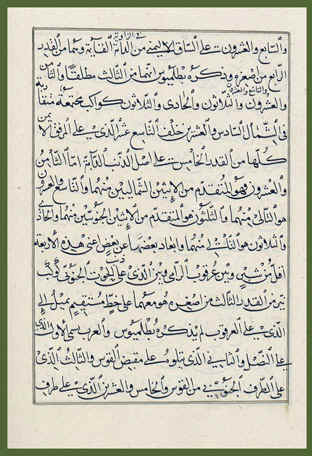 والسابع والعشرون على الساق الايمن من الدابة القائمة وهما من القدر
الرابع من اصغره وذكره بطلميوس انهما من الثالث مطلقا والثامن
والتاسع والعشرون
والعشرون والثلاثون والحادى والثلاثون كواكب مجتمعة متقاربة
فى الشمال السادس والعشرين خلف التاسع عشر الذى على المرفق الايمن
كلها من القدر الخامس على اصل الذنب الدابة اما الثامن
والعشرون فهو المتقدم من الاثنين الشماليين منهما والتاسع والعشرون
هو التالى منهما والثلثون هو المتقدم من الاثنين الجنوبيين منهما والحادى
والثلاثون هو التالى منهما وابعاد بعضها عن بعض اعنى هذه الاربعة
اقل من شبر وبين عرقوب الرامى وبين الذى على الجنوبى كوكب
نير من القدر الثالث من اصغره هو معهما على خط مستقيم يميل الى
الذى على العرقوب لم يذكره بطلميوس والعرب تسمى الاول الذى
على النصل والثانى الذى يتلوه على مقبض القوس والثالث الذى
على الطرف الجنوبى من القوس والخامس والعشرين الذى على طرف